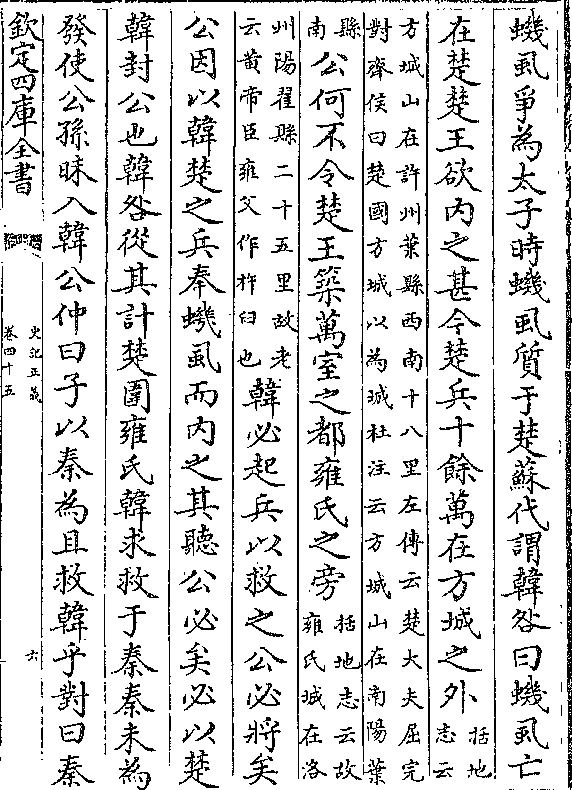 蟣虱爭為太子時蟣虱質于楚蘇代謂韓咎曰蟣虱亡
在楚楚王欲内之甚今楚兵十餘萬在方城之外括地志云
方城山在許州葉縣西南十八里左傳云楚大夫屈完
對齊侯曰楚國方城以為城杜注云方城山在南陽葉
縣南公何不令楚王築萬室之都雍氏之旁括地志云故雍氏城在洛
州陽翟縣二十五里故老云黄帝臣雍父作杵臼也韓必起兵以救之公必將矣
公因以韓楚之兵奉蟣虱而内之其聽公必矣必以楚
韓封公也韓咎從其計楚圍雍氏韓求救于秦秦未為
發使公孫昧入韓公仲曰子以秦為且救韓乎對曰秦
欽定四庫全書
史記正義
卷四十五
六